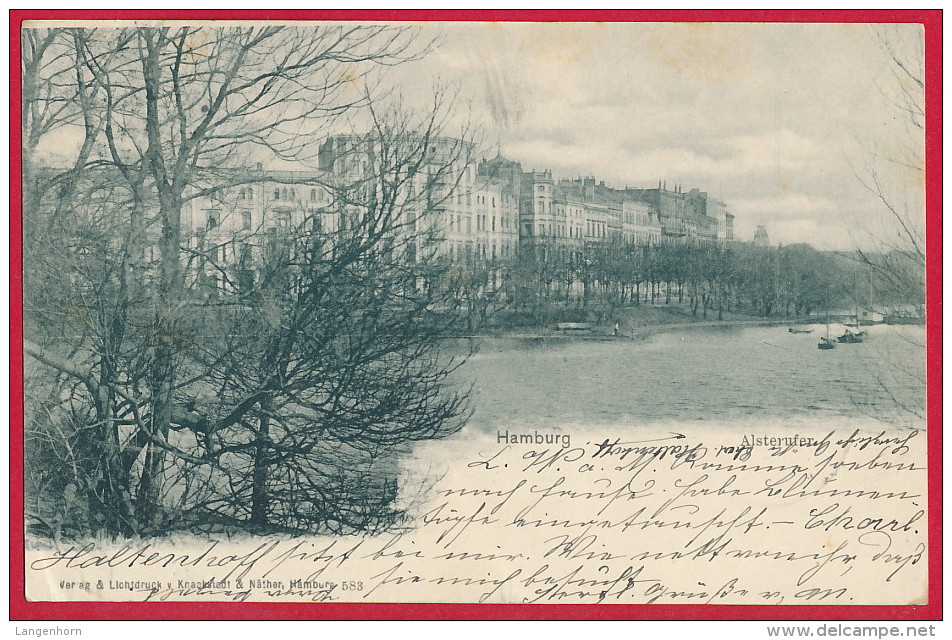 Hamburg
Alsterufer
L. W. a. M. Komme soeben
nach Hause, habe Blumen
töpfe eingetauscht. – Charl.
Haltenhoff sitzt bei mir. Wie nett von ihr, daß
sie mich besucht. Herzl. Grüße v.
Verlag & Lichtdruck v. Knackstedt & Näther, Hamburg 583
Langenhorn
http://www.delcampe.net